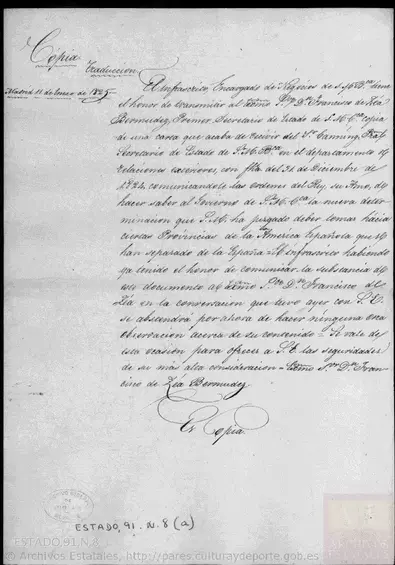 Copia
Traduccion
Madrid 11 de Enero de 1825
El Infrascrito, Encargado de Negocios de S.M.B.ca tiene
el honor de transmitir al Exmo. S.or D.n Francisco de Zea
Bermudez, Primer Secretario de Estado de S.M.C.ca copia
de una carta que acaba de recivir del S.r Canning, Pral.
Secretario de Estado de S.M.B.ca en el departamento de
relaciones exteriores, con fha. del 31 de Diciembre de
1824, comunicandole las ordenes del Rey, su Amo, de
hacer saber al Govierno de S.M.C.ca la nueva deter-
minacion que S.M. ha juzgado deber tomar hacia
ciertas Provincias de la America Española que se
han separado de la España = El infrascrito habiendo
ya tenido el honor de comunicar la substancia de
este documento al Exmo S.or D.n Francisco de
Zea en la conversacion que tuvo ayer con S.E.
se abstendrá por ahora de hacer ninguna otra
observacion acerca de su contenido = Se vale de
esta ocasion para ofrecer a S.E. las seguridades
de su mas alta consideracion = Exmo S.or D.n Fran-
cisco de Zea Bermudez
Es Copia
ESTADO, 91. N. 8 (a)
ESTADO,91,N.8
© Archivos Estatales, http://pares.culturaydeporte.gob.es